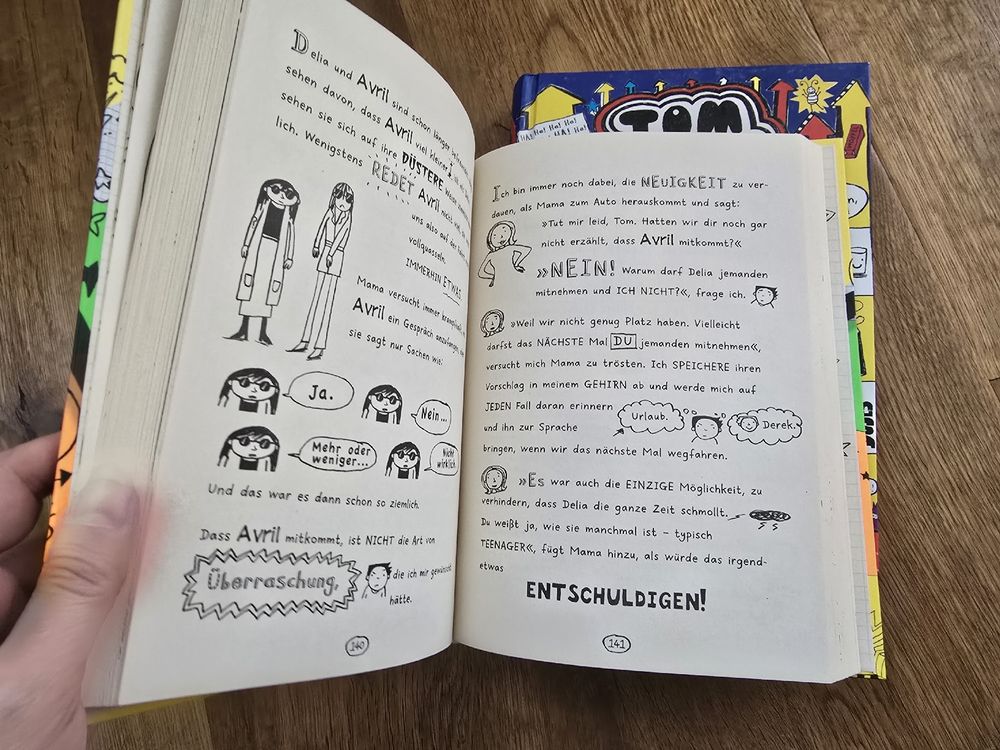 Delia und Avril sind schon länger
sehen davon, dass Avril viel kleiner ist
sehen sie sich auf ihre DÜSTERE
lich. Wenigstens REDET Avril nicht
uns also auf der
vollquasseln.
IMMERHIN ETWAS.
Mama versucht immer
Avril ein Gespräch anzufangen,
sie sagt nur Sachen wie:
Ja.
Nein...
Mehr oder
weniger...
Nicht
wirklich.
Und das war es dann schon so ziemlich.
Dass Avril mitkommt, ist NICHT die Art von
Überraschung, die ich mir gewünscht
hätte.
140
TOM
HA! Ha! Ha! Ha!
Ich bin immer noch dabei, die NEUIGKEIT zu ver-
dauen, als Mama zum Auto herauskommt und sagt:
»Tut mir leid, Tom. Hatten wir dir noch gar
nicht erzählt, dass Avril mitkommt?«
»NEIN! Warum darf Delia jemanden
mitnehmen und ICH NICHT?«, frage ich.
»Weil wir nicht genug Platz haben. Vielleicht
darfst das NÄCHSTE Mal DU jemanden mitnehmen«,
versucht mich Mama zu trösten. Ich SPEICHERE ihren
Vorschlag in meinem GEHIRN ab und werde mich auf
JEDEN Fall daran erinnern
und ihn zur Sprache
Urlaub.
Derek.
bringen, wenn wir das nächste Mal wegfahren.
»Es war auch die EINZIGE Möglichkeit, zu
verhindern, dass Delia die ganze Zeit schmollt.
Du weißt ja, wie sie manchmal ist – typisch
TEENAGER«, fügt Mama hinzu, als würde das irgend-
etwas
ENTSCHULDIGEN!
141